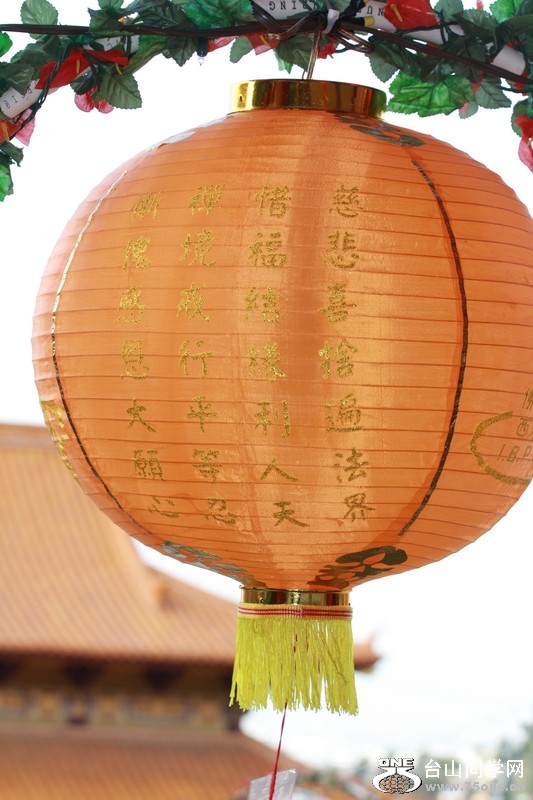 慈悲喜捨遍法界
惜福結緣利人天
禪淨戒行平等忍
慚愧感恩大願心
佛
西
I.B.P.
ONE
台山同学网